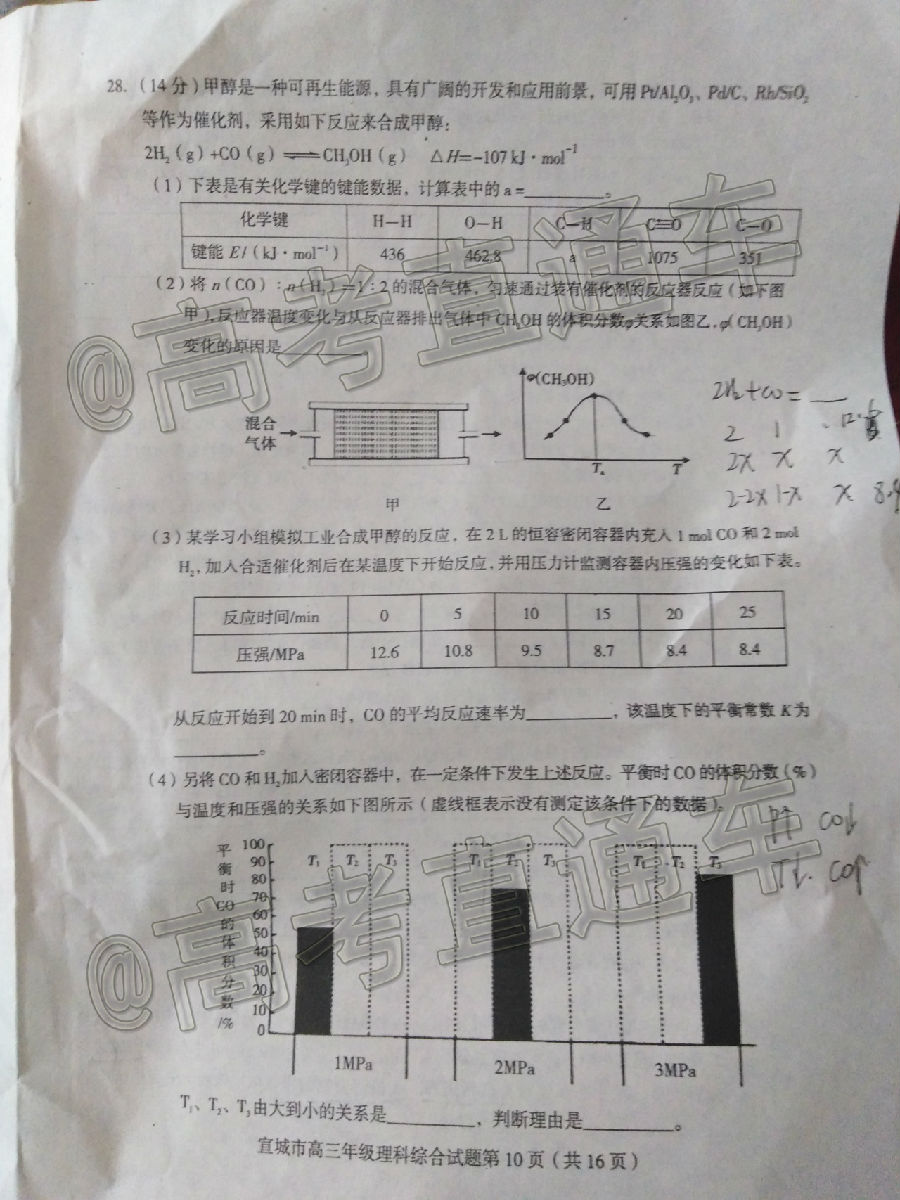 28.（14分）甲醇是一种可再生能源，具有广阔的开发和应用前景，可用Pt/Al₂O₃、Pd/C、Rh/SiO₂
等作为催化剂，采用如下反应来合成甲醇：
2H₂（g）+CO（g）⇌CH₃OH（g） △H=-107 kJ·mol⁻¹
（1）下表是有关化学键的键能数据，计算表中的a=________。
化学键 H—H O—H C—H C≡O C—O
键能 E/（kJ·mol⁻¹） 436 462.8 a 1075 351
（2）将n（CO）∶n（H₂）=1∶2的混合气体，匀速通过装有催化剂的反应器反应（如下图
甲），反应器温度变化与从反应器排出气体中CH₃OH的体积分数φ关系如图乙，φ（CH₃OH）
变化的原因是________
混合
气体
甲
φ(CH₃OH)
T
乙
2H₂+CO=
2 1
2x x x
2-2x 1-x x 8.4
（3）某学习小组模拟工业合成甲醇的反应，在2 L的恒容密闭容器内充入1 mol CO和2 mol
H₂，加入合适催化剂后在某温度下开始反应，并用压力计监测容器内压强的变化如下表。
反应时间/min 0 5 10 15 20 25
压强/MPa 12.6 10.8 9.5 8.7 8.4 8.4
从反应开始到20 min时，CO的平均反应速率为________，该温度下的平衡常数K为
________。
（4）另将CO和H₂加入密闭容器中，在一定条件下发生上述反应。平衡时CO的体积分数（%）
与温度和压强的关系如下图所示（虚线框表示没有测定该条件下的数据）。
P↑ CO↓
T↓. CO↑
平衡时CO的体积分数/%
100
90
80
70
60
50
40
30
20
10
0
T₁ T₂ T₃
T₁ T₂ T₃
T₁ T₂ T₃
1MPa 2MPa 3MPa
T₁、T₂、T₃由大到小的关系是________，判断理由是________。
宣城市高三年级理科综合试题第10页（共16页）
@高考直通车
@高考直通车